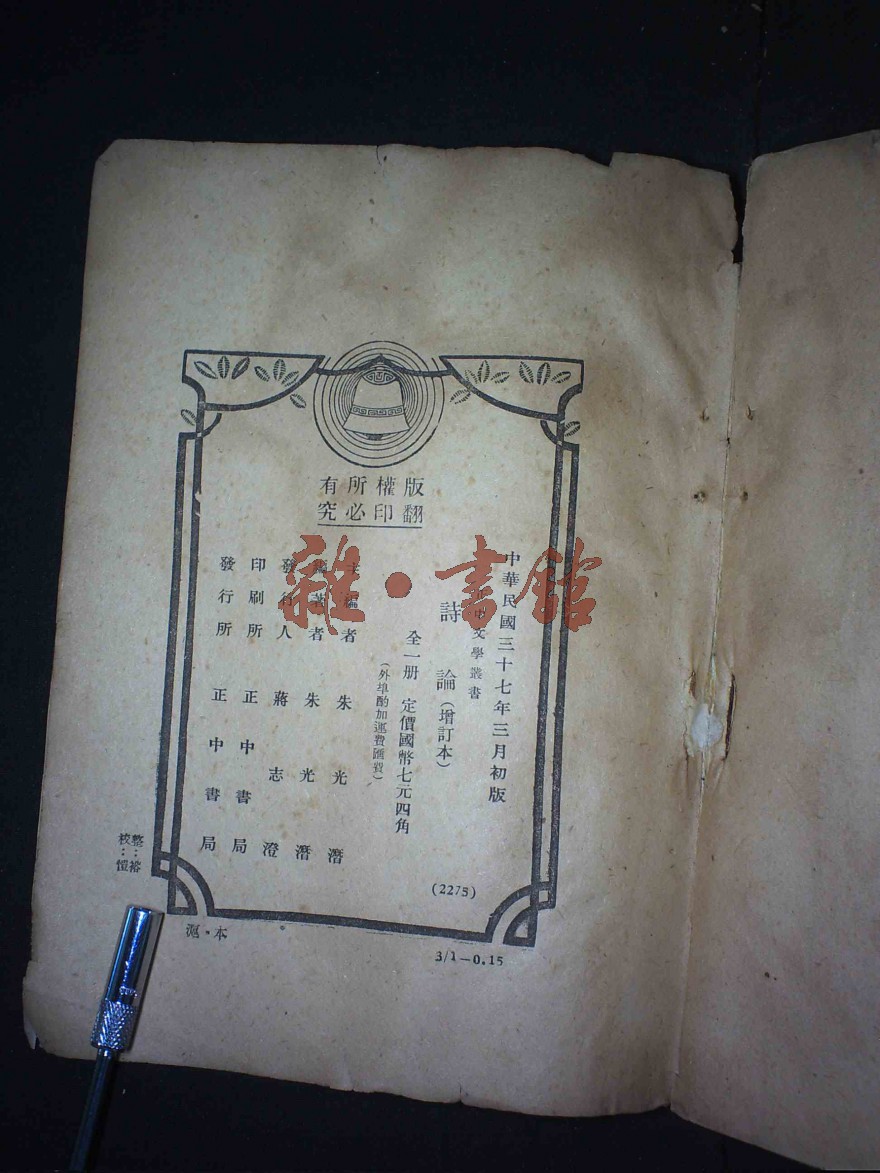 版權所有
翻印必究
中華民國三十七年三月初版
文學叢書
詩論(增訂本)
全一册 定價國幣七元四角
(外埠酌加運費匯費)
主編者 朱光潛
編著者 朱光潛
發行人 蔣志澄
印刷所 正中書局
發行所 正中書局
(2275)
整:裕
校:愷
滬·本
3/1-0.15
雜·書館